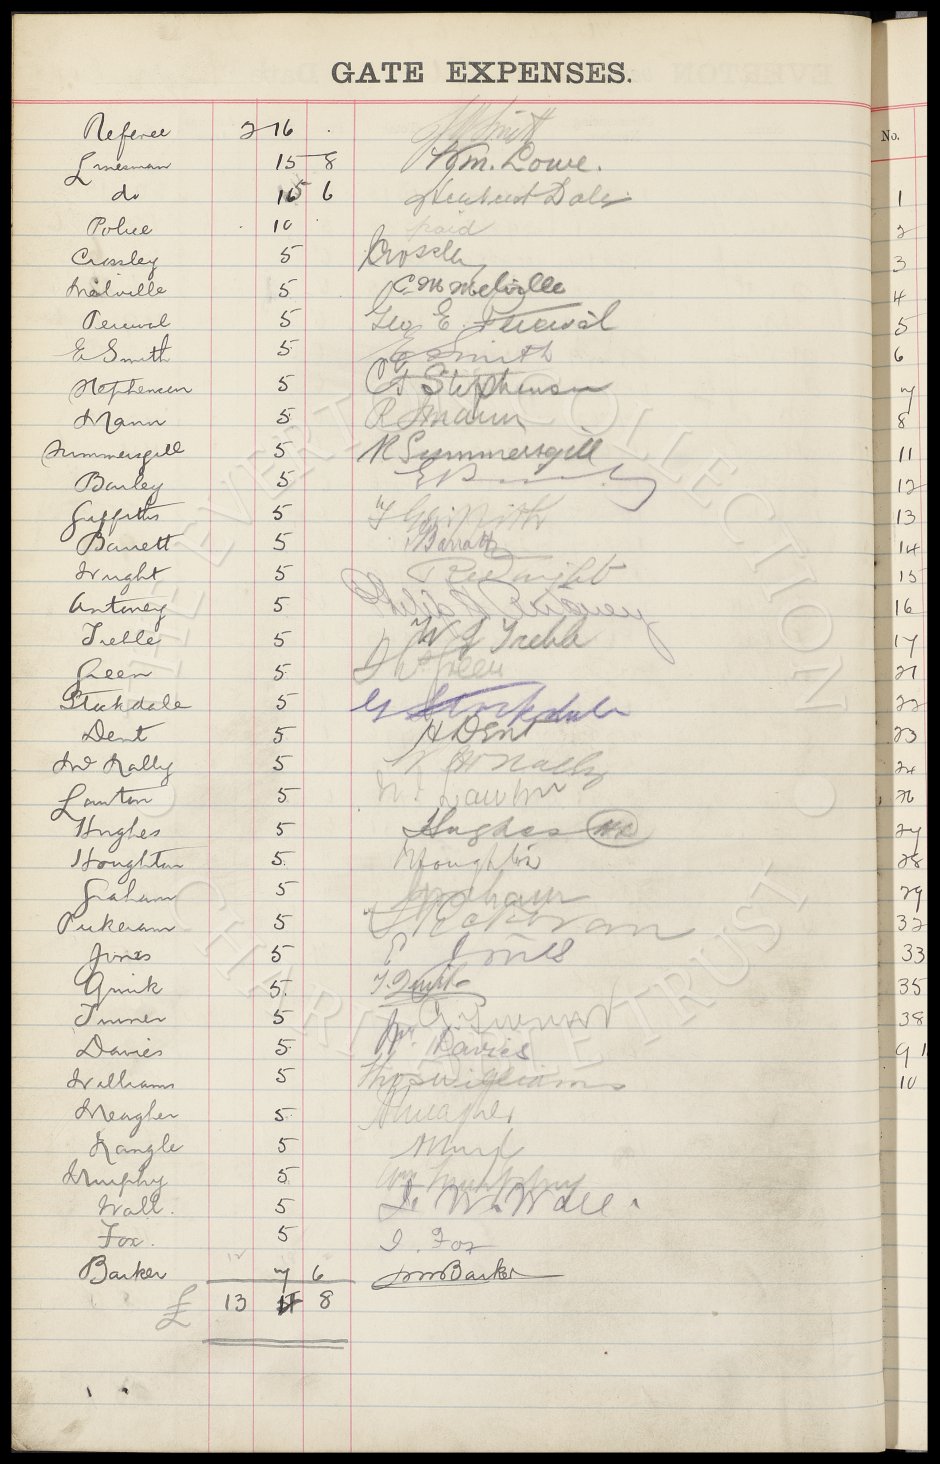 GATE EXPENSES.
No.
Referee 2 16 . Smith
Linesman 15 8 Wm. Lowe.
do 15 6 Herbert Dale 1
Police . 10 . paid 2
Crossley 5 Crossley 3
Melville 5 C. M Melville 4
Percival 5 Geo E. Percival 5
E Smith 5 E Smith 6
Stephenson 5 G Stephenson 7
Mann 5 R Mann 8
Summersgill 5 R Summersgill 11
Barley 5 E 12
Griffiths 5 Griffith 13
Barrett 5 Barratt 14
Wright 5 Wright 15
Antoney 5 16
Treble 5 W J Treble 17
Green 5 Green 21
Stockdale 5 G Stockdale 22
Dent 5 H Dent 23
Mc Nally 5 Mc Nally 24
Lawton 5 Lawton 26
Hughes 5 Hughes 27
Houghton 5 Houghton 28
Graham 5 Graham 29
Pickavan 5 Pickavan 32
Jones 5 E Jones 33
Quirk 5 T. Quirk 35
Turner 5 Turner 38
Davies 5 Wm. Davies 9
Williams 5 Thos Williams 10
Meagher 5 Meagher
Nangle 5
Murphy 5 Wm Murphy
Wall. 5 W. Wall.
Fox. 5 J. Fox
Barker 7 6 Barker
£ 13 8
THE EVERTON COLLECTION CHARITABLE TRUST